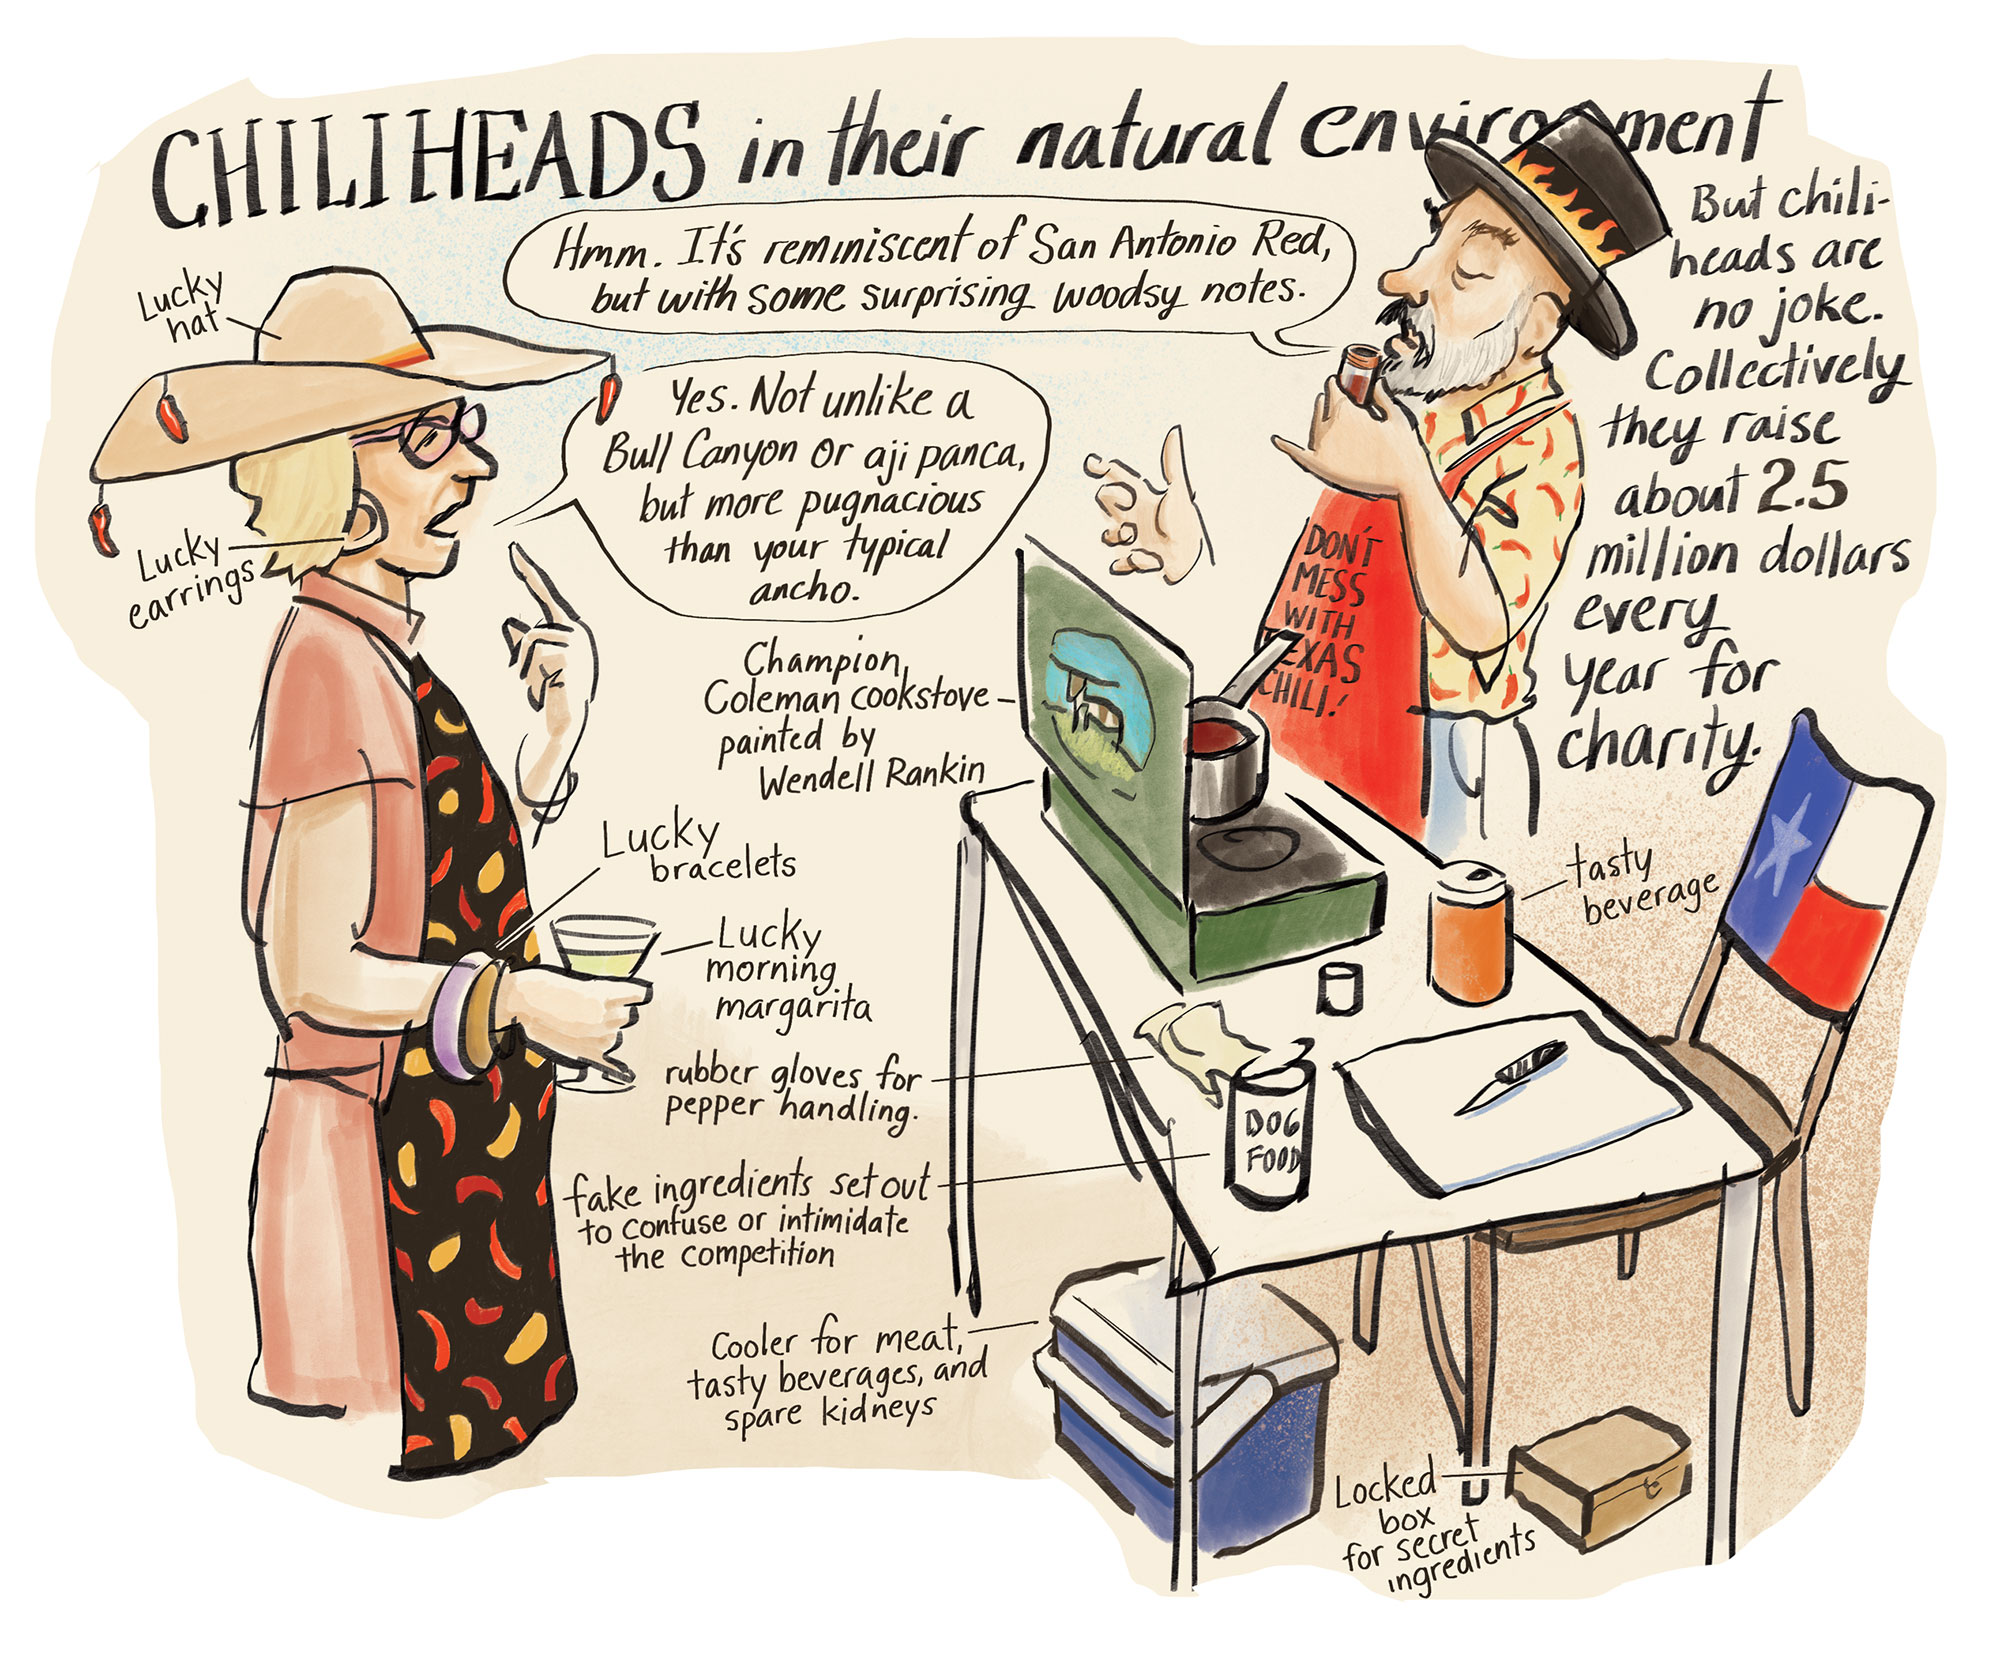 CHILIHEADS in their natural environment
Hmm. It's reminiscent of San Antonio Red,
but with some surprising woodsy notes.
But chili-
heads are
no joke.
Collectively
they raise
about 2.5
million dollars
every
year for
charity.
Lucky
hat
Yes. Not unlike a
Bull Canyon or aji panca,
but more pugnacious
than your typical
ancho.
Lucky
earrings
DON'T
MESS
WITH
TEXAS
CHILI!
Champion,
Coleman cookstove
painted by
Wendell Rankin
Lucky
bracelets
tasty
beverage
Lucky
morning
margarita
rubber gloves for
pepper handling.
DOG
FOOD
fake ingredients set out
to confuse or intimidate
the competition
Cooler for meat,
tasty beverages, and
spare kidneys
Locked
box
for secret
ingredients